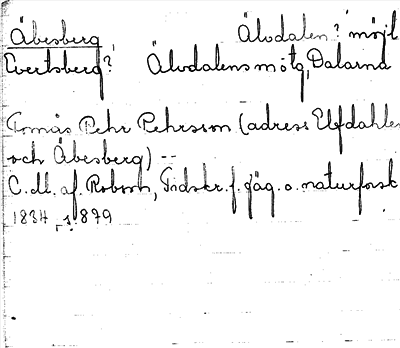 Åbesberg Älvdalen? möjl
Evertsberg? Älvdalens mötg, Dalarna
Tomås Pehr Pehrsson (adress Elfdahle
och Åbesberg) --
C. M. af. Robson, Tidskr. f. jäg. o. naturforsk
1834, s. 879